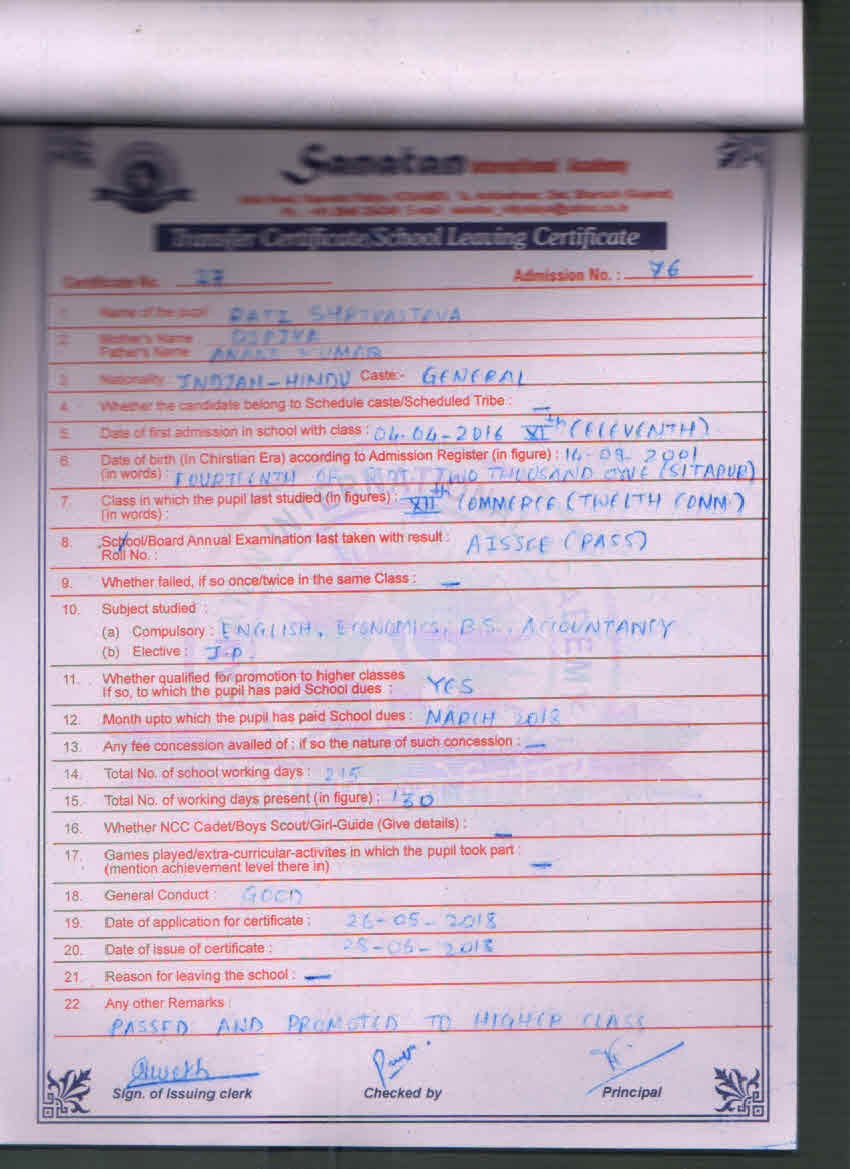 Sanatan International Academy
Transfer Certificate/School Leaving Certificate
Certificate No. 27 Admission No. : 76
1. Name of the pupil
2. Mother's Name
Father's Name ANANT KUMAR
3. Nationality INDIAN-HINDU Caste:- GENERAL
4. Whether the candidate belong to Schedule caste/Scheduled Tribe : —
5. Date of first admission in school with class : 04-04-2016 XIth (ELEVENTH)
6. Date of birth (In Chirstian Era) according to Admission Register (in figure) : 14-09-2001
(in words) : FOURTEENTH OF TWO THOUSAND (SITAPUR)
7. Class in which the pupil last studied (In figures) : XIIth COMMERCE (TWELTH COMM.)
(in words) :
8. School/Board Annual Examination last taken with result : AISSCE (PASS)
Roll No. :
9. Whether failed, if so once/twice in the same Class : —
10. Subject studied :
(a) Compulsory : ENGLISH, ECONOMICS, B.S., ACCOUNTANCY
(b) Elective : I.P
11. Whether qualified for promotion to higher classes YES
If so, to which the pupil has paid School dues :
12. Month upto which the pupil has paid School dues : MARCH 2018
13. Any fee concession availed of : if so the nature of such concession : —
14. Total No. of school working days : 215
15. Total No. of working days present (in figure) : 130
16. Whether NCC Cadet/Boys Scout/Girl-Guide (Give details) : —
17. Games played/extra-curricular-activites in which the pupil took part : —
(mention achievement level there in)
18. General Conduct : GOOD
19. Date of application for certificate : 26-05-2018
20. Date of issue of certificate : 2018
21. Reason for leaving the school : —
22. Any other Remarks :
PASSED AND PROMOTED TO HIGHER CLASS
Sign. of Issuing clerk Checked by Principal